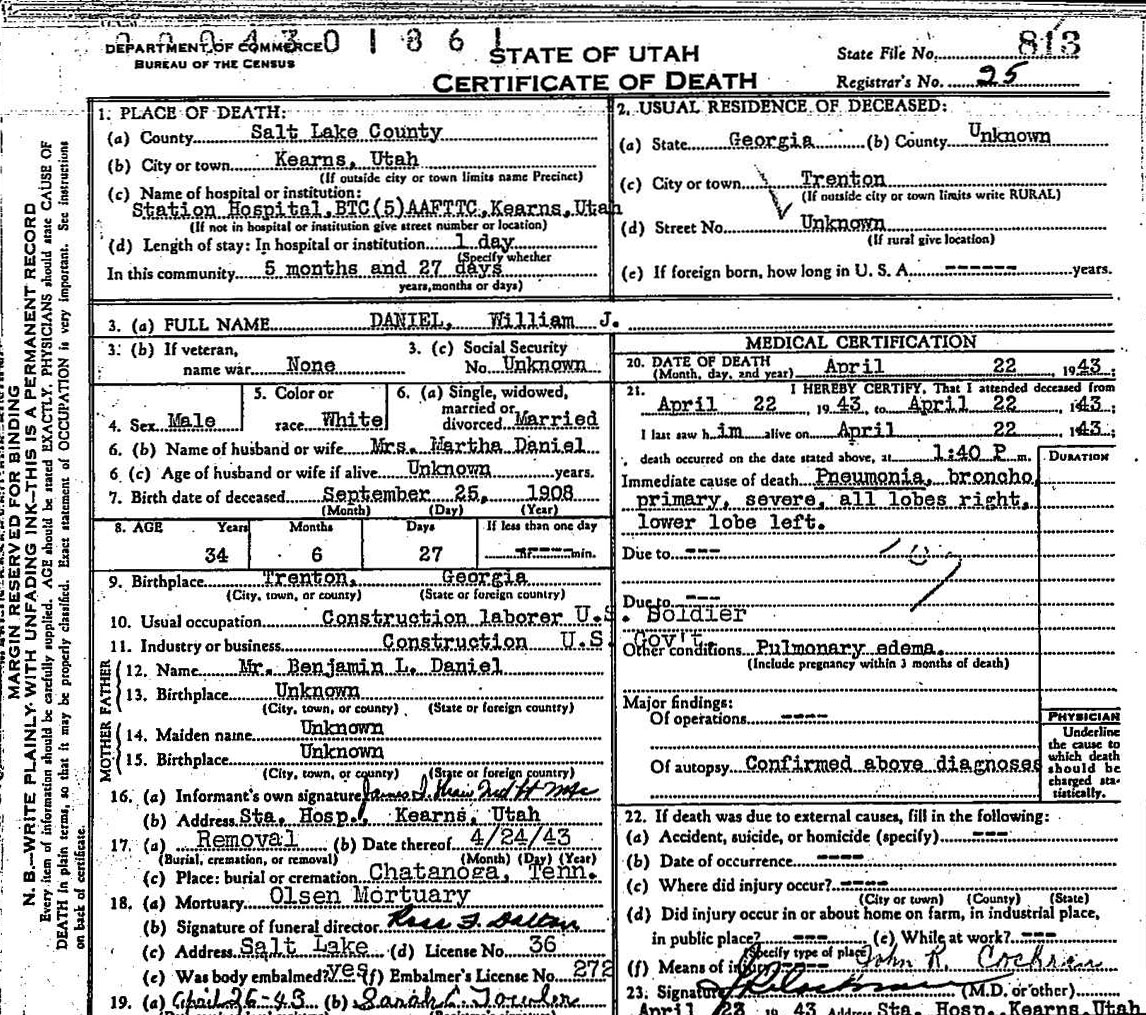 0 0 0 4 3 0 1 8 6 1
DEPARTMENT OF COMMERCE
BUREAU OF THE CENSUS
STATE OF UTAH
CERTIFICATE OF DEATH
State File No. 813
Registrar's No. 25
MARGIN RESERVED FOR BINDING
N. B.—WRITE PLAINLY WITH UNFADING INK—THIS IS A PERMANENT RECORD
Every item of information should be carefully supplied. AGE should be stated EXACTLY. PHYSICIANS should state CAUSE OF
DEATH in plain terms, so that it may be properly classified. Exact statement of OCCUPATION is very important. See instructions
on back of certificate.
1. PLACE OF DEATH:
(a) County Salt Lake County
(b) City or town Kearns, Utah
(If outside city or town limits name Precinct)
(c) Name of hospital or institution:
Station Hospital,BTC(5)AAFTTC,Kearns,Utah
(If not in hospital or institution give street number or location)
(d) Length of stay: In hospital or institution 1 day
(Specify whether
In this community 5 months and 27 days
years, months or days)
2. USUAL RESIDENCE OF DECEASED:
(a) State Georgia (b) County Unknown
(c) City or town Trenton
(If outside city or town limits write RURAL)
(d) Street No. Unknown
(If rural give location)
(e) If foreign born, how long in U. S. A. ------ years.
3. (a) FULL NAME DANIEL, William J.
3. (b) If veteran,
name war None
3. (c) Social Security
No. Unknown
4. Sex Male
5. Color or
race White
6. (a) Single, widowed,
married or
divorced Married
6. (b) Name of husband or wife Mrs. Martha Daniel
6. (c) Age of husband or wife if alive Unknown years.
7. Birth date of deceased September 25, 1908
(Month) (Day) (Year)
8. AGE Years Months Days If less than one day
34 6 27 min.
9. Birthplace Trenton, Georgia
(City, town, or county) (State or foreign country)
10. Usual occupation Construction laborer U.S. Soldier
11. Industry or business Construction U.S. Gov't.
FATHER
12. Name Mr. Benjamin L. Daniel
13. Birthplace Unknown
(City, town, or county) (State or foreign country)
MOTHER
14. Maiden name Unknown
15. Birthplace Unknown
(City, town, or county) (State or foreign country)
16. (a) Informant's own signature James
(b) Address Sta. Hosp., Kearns, Utah
17. (a) Removal (b) Date thereof 4/24/43
(Burial, cremation, or removal) (Month) (Day) (Year)
(c) Place: burial or cremation Chatanoga, Tenn.
18. (a) Mortuary Olsen Mortuary
(b) Signature of funeral director Ross F. Dalton
(c) Address Salt Lake (d) License No. 36
(e) Was body embalmed? yes (f) Embalmer's License No. 272
19. (a) April 26-43 (b) Sarah
MEDICAL CERTIFICATION
20. DATE OF DEATH
(Month, day, and year) April 22, 1943;
21. I HEREBY CERTIFY, That I attended deceased from
April 22, 1943, to April 22 1943;
I last saw him alive on April 22 1943;
death occurred on the date stated above, at 1:40 P m.
DURATION
Immediate cause of death Pneumonia, broncho,
primary, severe, all lobes right,
lower lobe left.
Due to ---
Due to ---
Other conditions Pulmonary edema.
(Include pregnancy within 3 months of death)
Major findings:
Of operations ----
Of autopsy Confirmed above diagnoses
PHYSICIAN
Underline
the cause to
which death
should be
charged sta-
tistically.
22. If death was due to external causes, fill in the following:
(a) Accident, suicide, or homicide (specify) ---
(b) Date of occurrence ----
(c) Where did injury occur? ----
(City or town) (County) (State)
(d) Did injury occur in or about home on farm, in industrial place,
in public place? --- (e) While at work? ---
(Specify type of place)
(f) Means of injury ---- John R. Cochran
23. Signature (M.D. or other)
April 23 1943 Address Sta. Hosp., Kearns, Utah